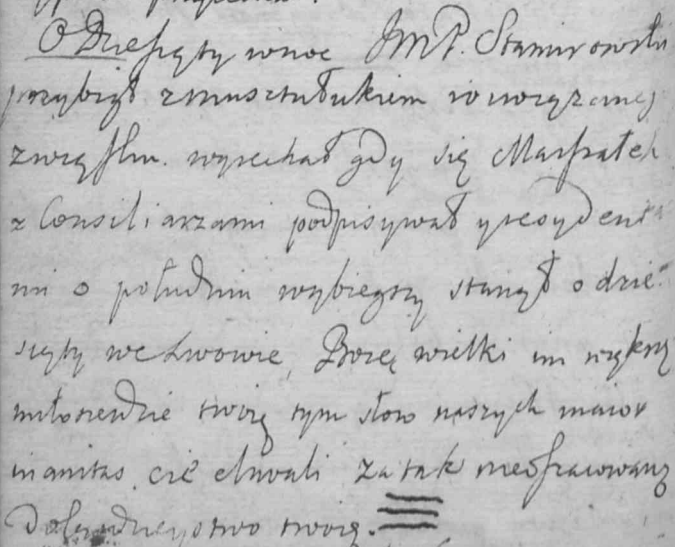 O Dziesiąty w noc JmP. Stamirowski
przybiegł z munsztułukiem
wyiechał gdy się Marszałek
z Consiliarzami podpisywał y rezydenta
mi o południu wybiegszy stanął o dzie
siąty we Lwowie, Boże wielki im większe
miłosierdzie twoie tym słow naszych maior
inanitas cię chwali za tak nieoszacowane
Dobrodzieystwo twoie.